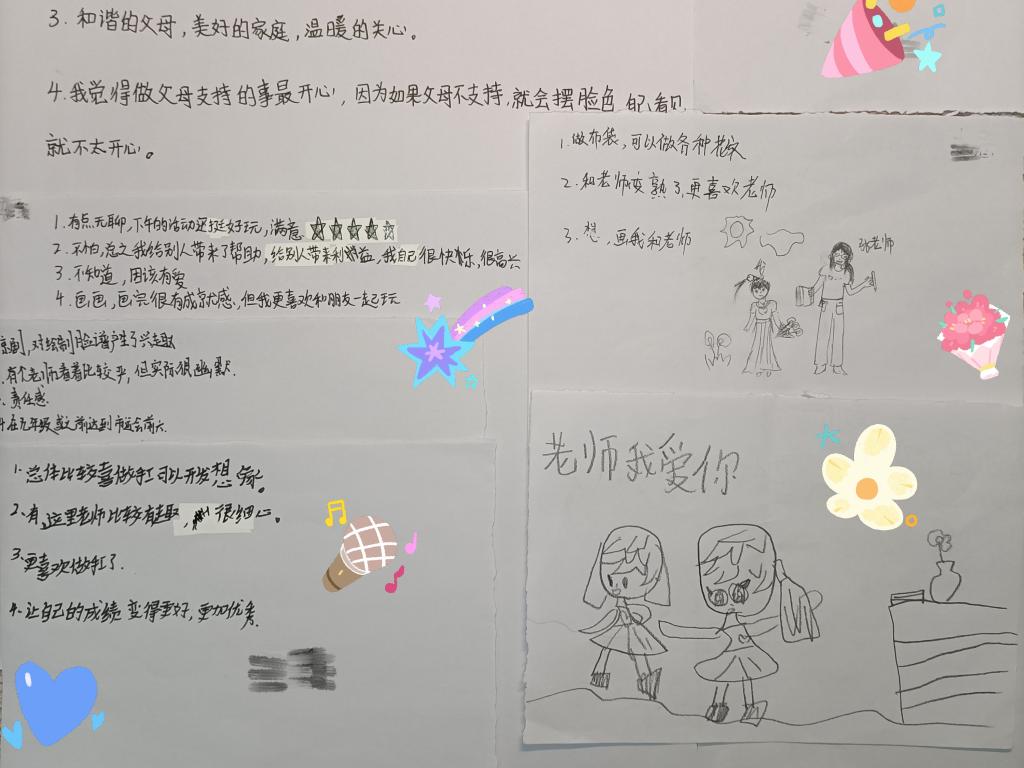 3. 和谐的父母，美好的家庭，温暖的关心。
4. 我觉得做父母支持的事最开心，因为如果父母不支持，就会摆脸色
就不太开心。
1. 有点无聊，下午的活动还挺好玩，满意
2. 不怕，总之我给别人带来了帮助，给别人带来利益，我自己很快乐，很高兴
3. 不知道，因该有爱
4. 画画，画完很有成就感，但我更喜欢和朋友一起玩
京剧，对绘制脸谱产生了兴趣
有个老师看着比较严，但实际很幽默.
责任感
在九年级或之前达到市运会前六.
1. 总体比较喜做手工可以开发想象。
2. 有，这里老师比较有趣，很细心。
3. 更喜欢做手工了.
4. 让自己的成绩变得更好，更加优秀.
1. 做布袋，可以做各种花纹
2. 和老师变熟了，更喜欢老师
3. 想，画我和老师
张老师
老师我爱你